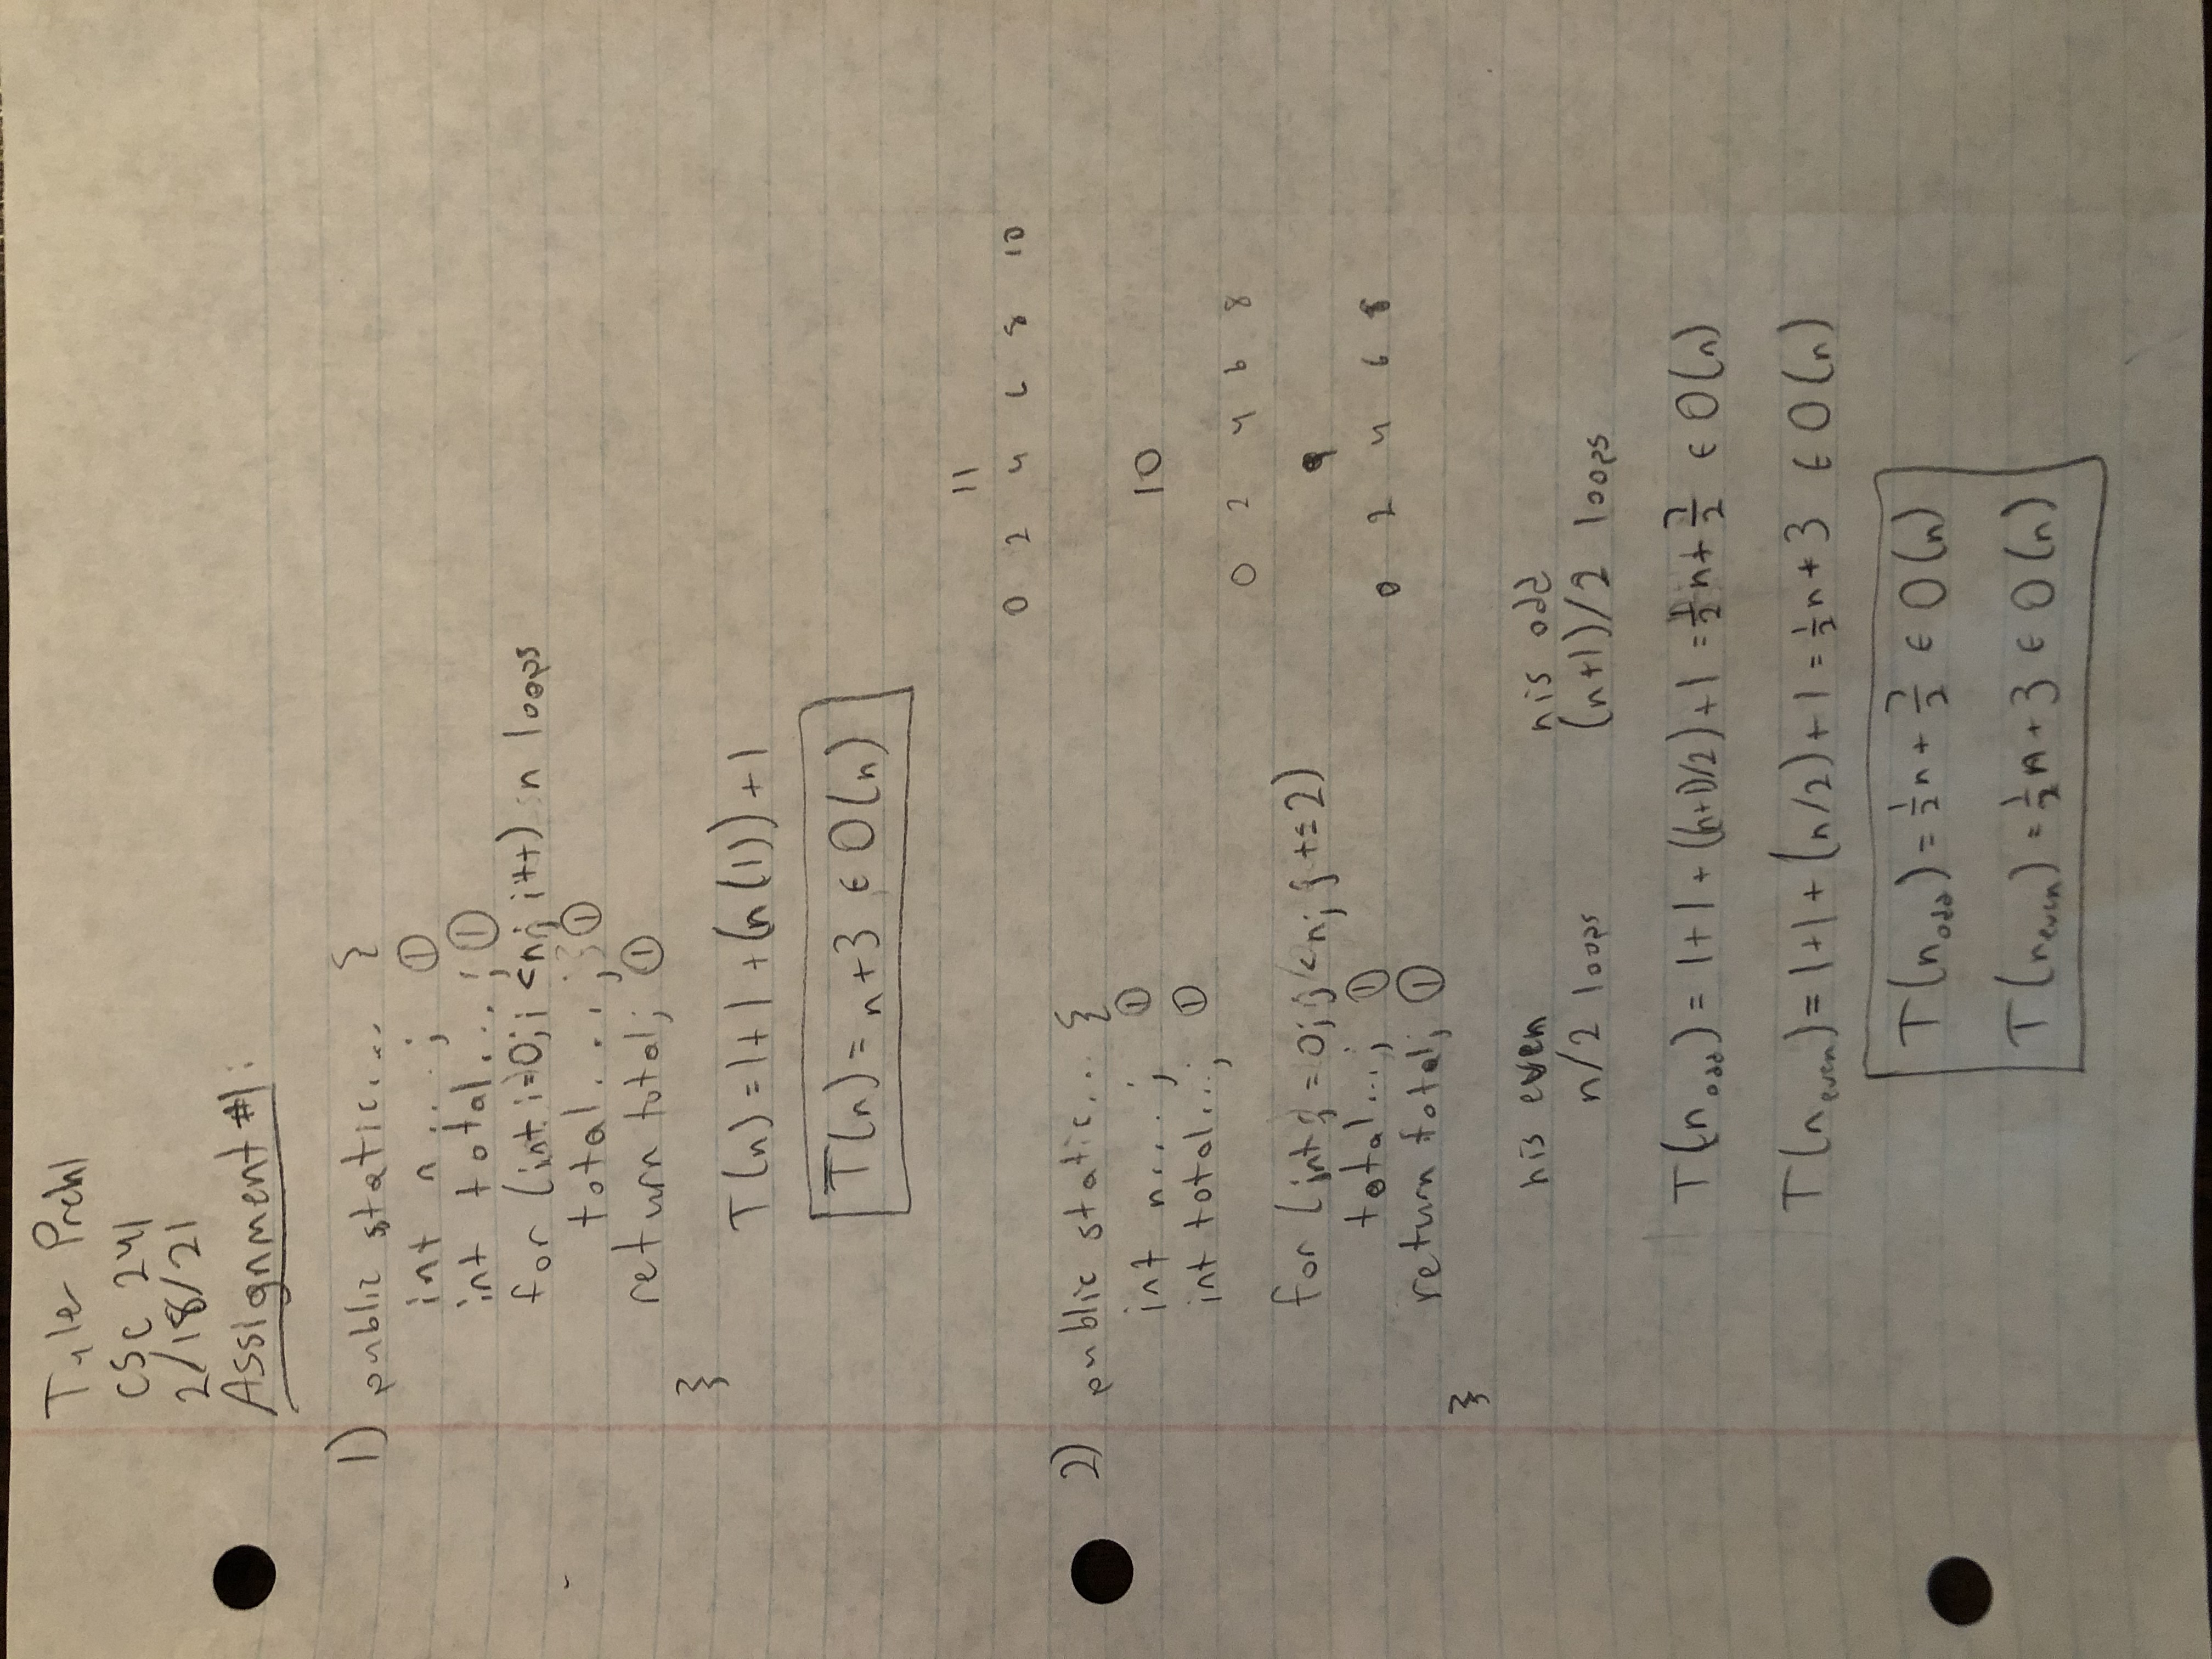 Tyler Prehl
CSC 241
2/18/21
Assignment #1:
1) public static... {
int n...; ①
int total...; ①
for (int i=0; i<n; i++) n loops
total...; ①
return total; ①
}
T(n) = 1+1+(n(1))+1
T(n) = n+3 ∈ O(n)
11
0 2 4 6 8 10
2) public static... {
int n...; ①
int total...; ①
10
0 2 4 6 8
for (int j=0; j<n; j+=2)
total...; ①
return total; ①
}
9
0 2 4 6 8
n is even
n/2 loops
n is odd
(n+1)/2 loops
T(n_odd) = 1+1+((n+1)/2)+1 = ½n + 7/2 ∈ O(n)
T(n_even) = 1+1+(n/2)+1 = ½n+3 ∈ O(n)
T(n_odd) = ½n + 7/2 ∈ O(n)
T(n_even) = ½n+3 ∈ O(n)